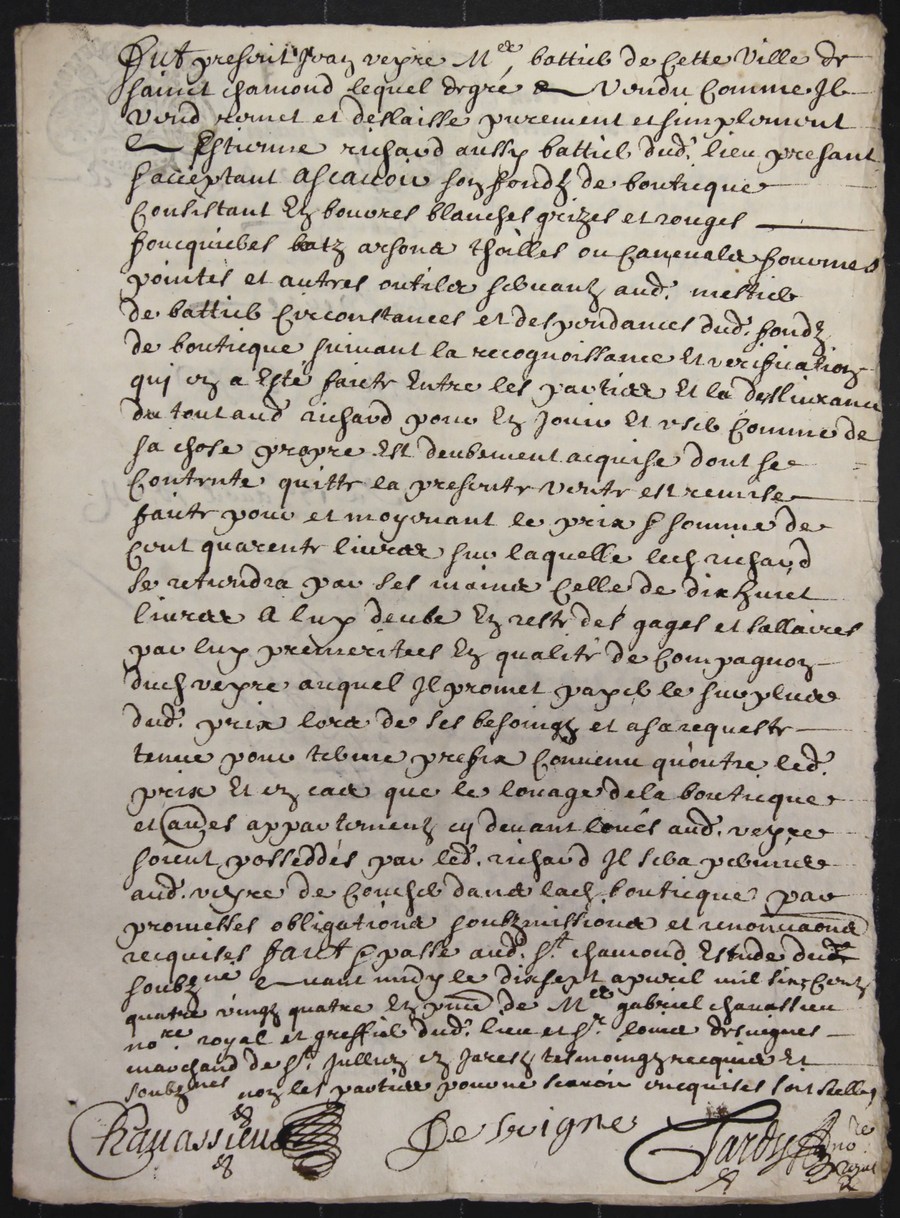 Fut presen Jean veyre Me battieb de Cette Ville de
sainct chamond lequel degré a Vendu Comme Il
Vend remet et deslaisse purement et simplement
a Estienne richard aussy battieb dud. lieu presant
sacceptant Ascavoir son fondz de bouticque
Consistant En bourres blanches grizes et rouges
batz arsons ou
pointes et autres outilz servantz aud. mestieb
de battieb Circonstances et despendances dud. fondz
de bouticque suivant la recognoissance Et verification
quj en a Esté faicte Entre les parties Et la deslivrance
du tout aud richard pour En Jouir Et user Comme de
sa chose propre Est deubement acquise dont se
Contente quitte la presente vente est remise
faicte pour et moyenant le prix & somme de
Cent quarente livres sur laquelle led. richard
se retiendra par ses mains Celle de dix huict
livres A luy deube En reste des gages et sallaires
par luy premeritees En qualité de Compagnon
dud. veyre auquel Il promet payer le surplus
dud. prix lors de ses besoingz et asa requeste
tenue pour terme prefix Convenu quoutre led.
prix Et en cas que le louage dela bouticque
et aultres appartementz cy devant loués aud. veyre
soient posseddés par led. richard Il sera permis
aud. veyre de Coucher dans lad. bouticque par
promesses obligations soubzmissions et renonciaons
recquises faict & passé aud. St chamond Estude dud.
soubzne avant midy le dixsept apvril mil six Centz
quatre vingtz quatre En pnce de Me gabriel chavassieu
nore royal et greffieb dud. lieu et sr. louis desvignes
marchand de St Jullien en Jarestz tesmoingz recquis Et
soubznes non les parties pour ne scavoir enquises
Chavassieu Desvigne Tardy no re
royal